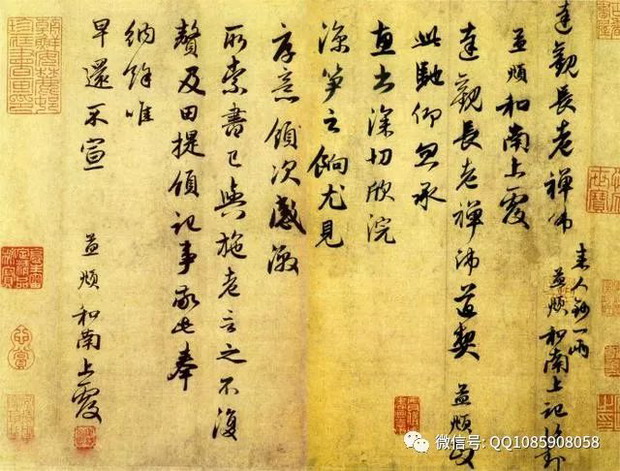 達觀長老禅師
来人鈔一兩
孟頫和南上記謹封
孟頫和南上覆
達觀長老禅師道契孟頫
此馳仰忽承
惠書深切欣浣
涼笋之餉尤見
厚意領次感激
所索書已與施老言之不復
贅及田提領記事敬已奉
納餘唯
早還不宣
孟頫和南上覆
微信号: QQ1085908058